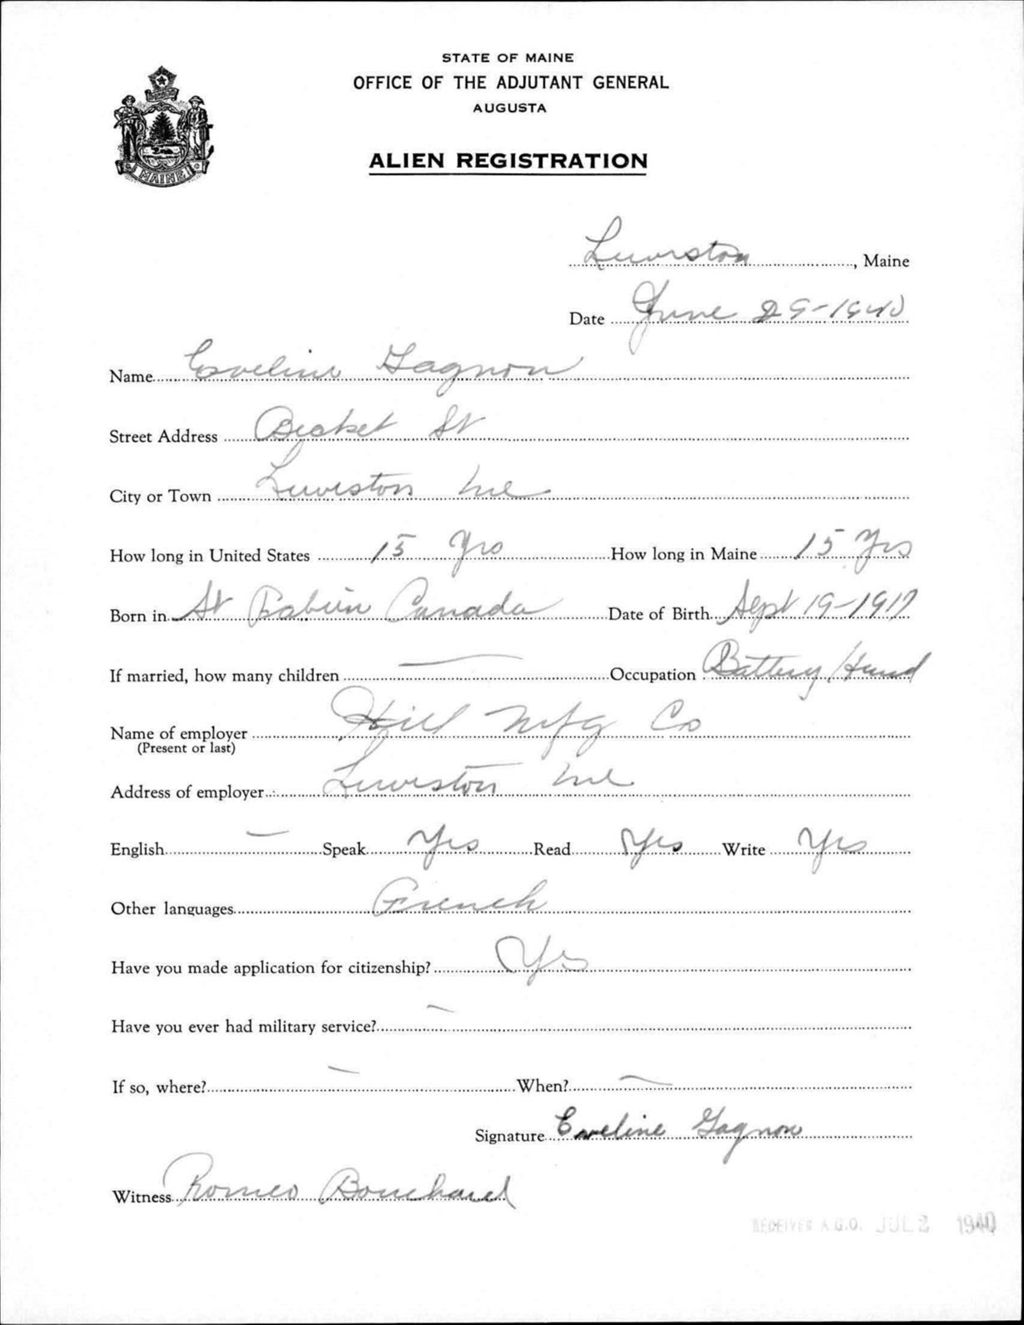 STATE OF MAINE
OFFICE OF THE ADJUTANT GENERAL
AUGUSTA
MAINE
ALIEN REGISTRATION
Lewiston, Maine
Date June 29-1940
Name Eveline Gagnon
Street Address Becket St
City or Town Lewiston Me
How long in United States 15 Yrs How long in Maine 15 Yrs
Born in St Fabien Canada Date of Birth Sept 19-1917
If married, how many children — Occupation Battery Hand
Name of employer Hill Mfg Co
(Present or last)
Address of employer Lewiston Me
English — Speak Yes Read Yes Write Yes
Other languages French
Have you made application for citizenship? Yes
Have you ever had military service? —
If so, where? — When? —
Signature Eveline Gagnon
Witness Romeo Bouchard
RECEIVED A.G.O. JUL 2 1940